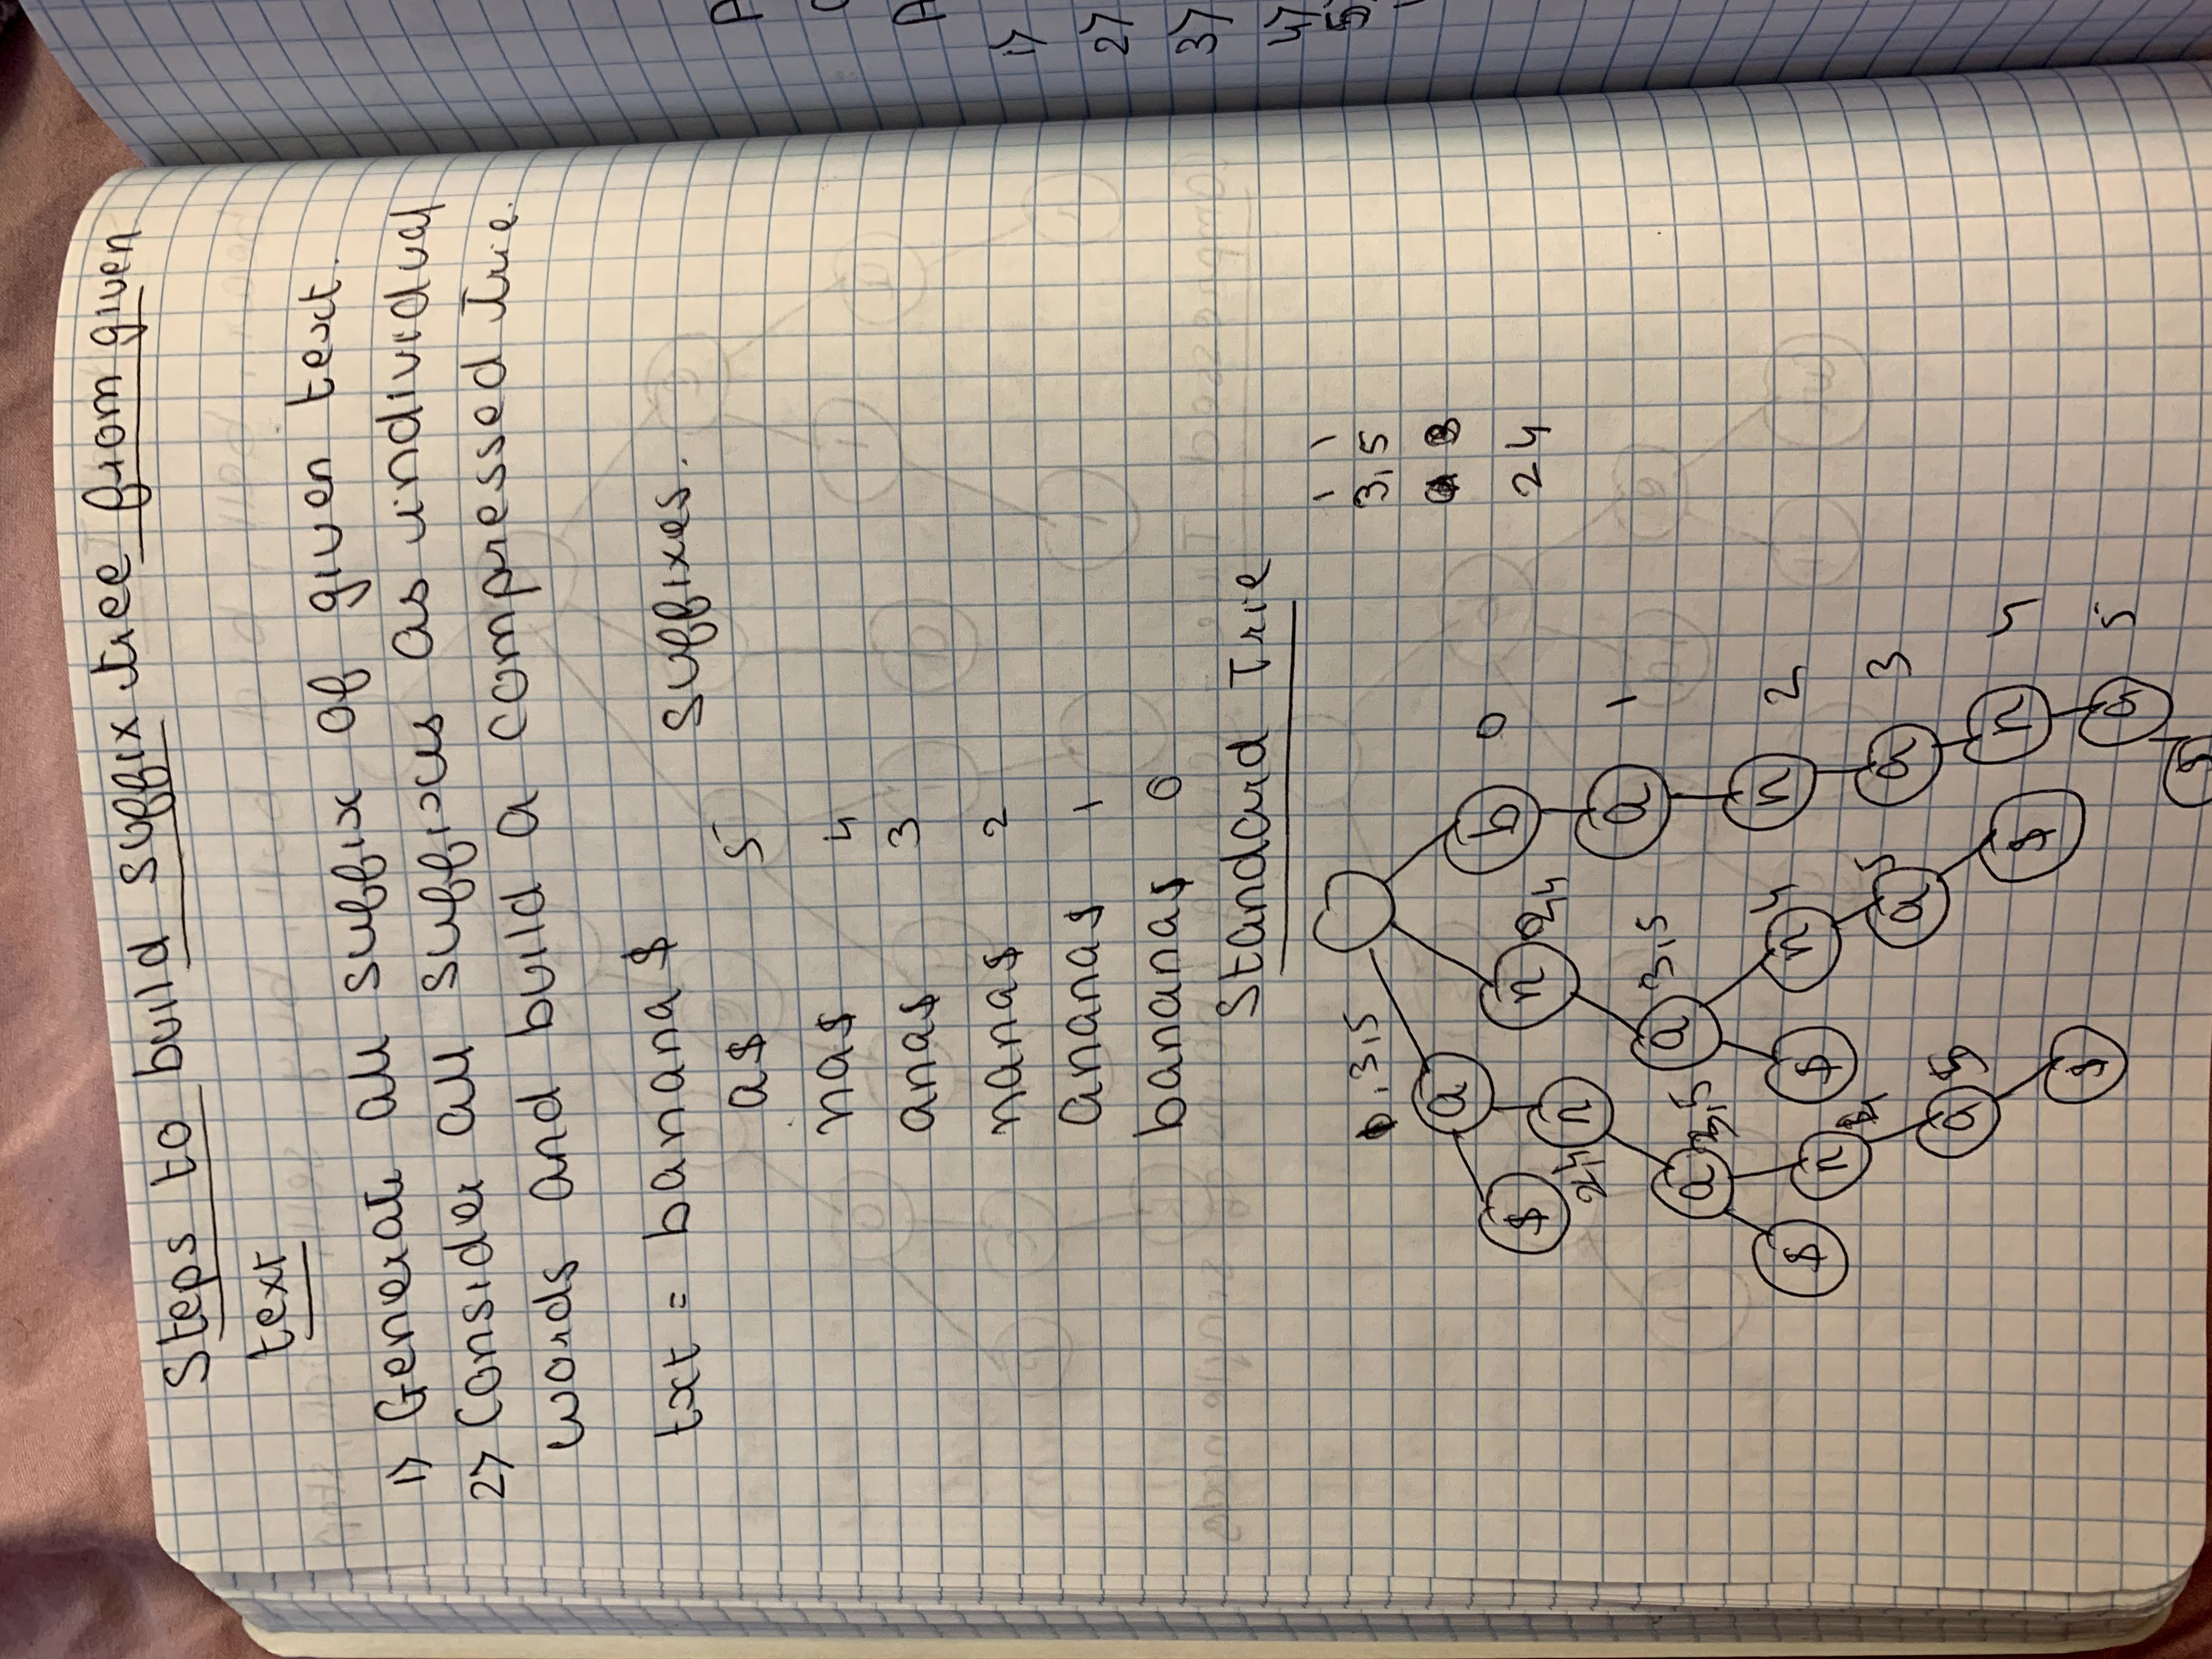 Steps to build suffix tree from given
text
1) Generate all suffix of given text.
2) Consider all suffixes as individual
words and build a compressed Trie.
txt = banana$ suffixes.
a$ 5
na$ 4
ana$ 3
nana$ 2
anana$ 1
banana$ 0
Standard Trie
1 1
, 3,5 3,5
a
$ n n 2,4 b 0 2 4
2,4
a 3,5 a 3,5 a 1
$ n $ n 4 n 2
a 5 a 5 a 3
$ $ n 4
a 5
$
A
A
1)
2)
3)
4)
5)